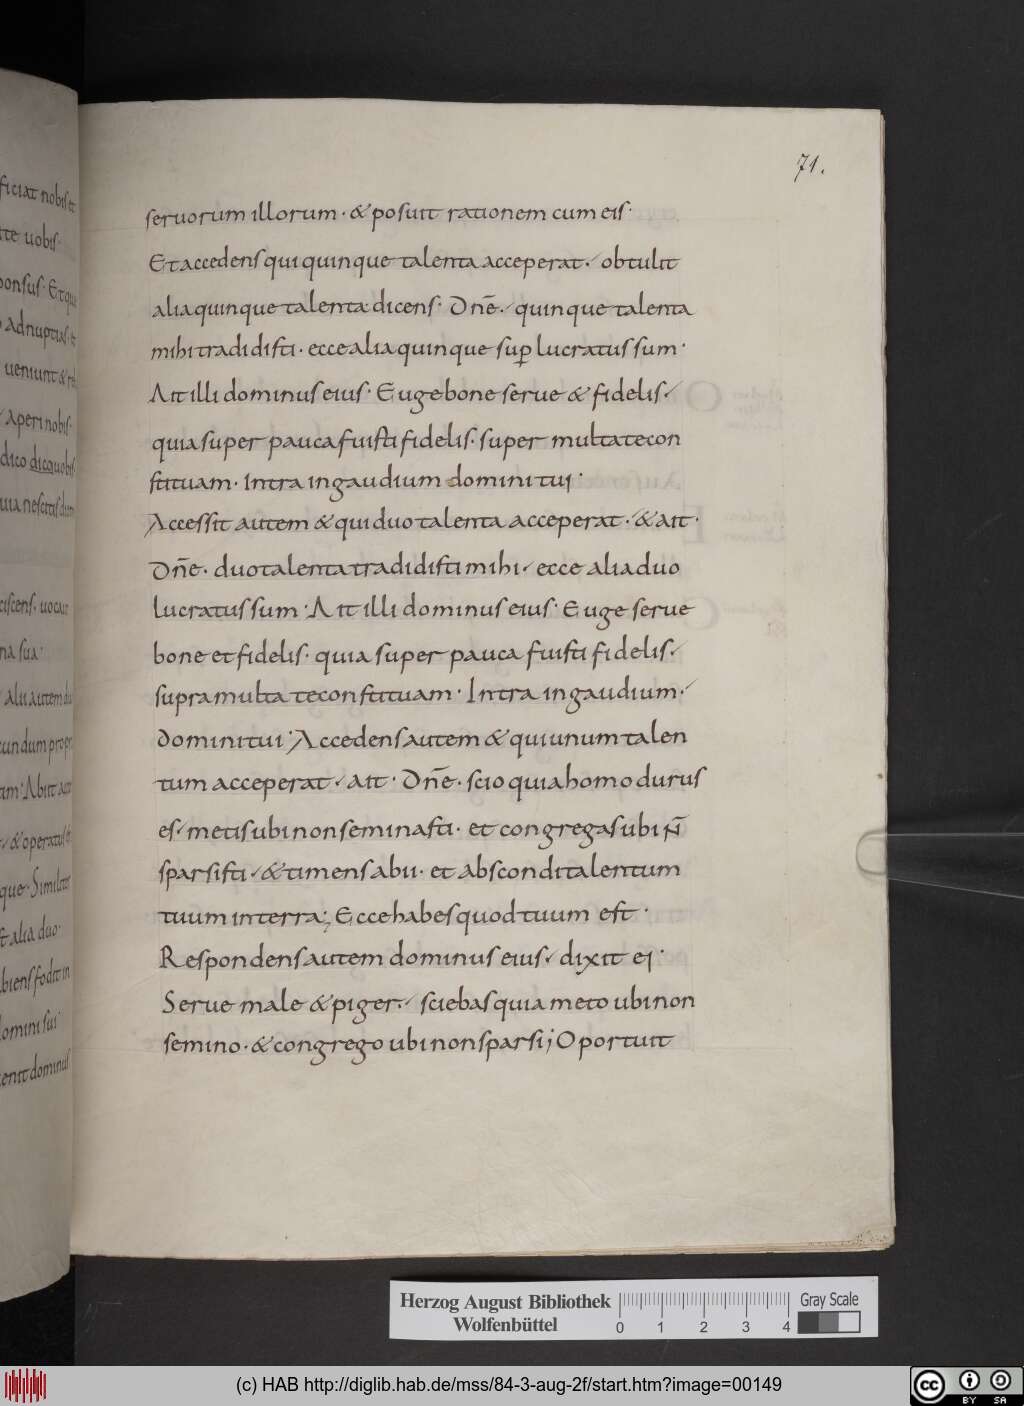 ficiat nobis et
ite uobis·
ponsus· Et que
adnuptias· et
ueniunt &
aperi nobis·
dico dicquobis
uia nescitis diem
ciscens· uocauit
na sua·
alii autem duo
cundum propri
tim· Abiit aut
& operatus
que· Similiter
alia duo·
biens fodit in
domini sui·
enit dominus
71.
seruorum illorum· & posuit rationem cum eis·
Et accedens qui quinque talenta acceperat· obtulit
alia quinque talenta dicens· Dnē· quinque talenta
mihi tradidisti· ecce alia quinque sup lucratus sum·
Ait illi dominus eius· Euge bone serue & fidelis·
quia super pauca fuisti fidelis· super multa tecon
stituam· Intra in gaudium domini tui·
Accessit autem & qui duo talenta acceperat· & ait·
Dn̄e· duo talenta tradidisti mihi· ecce alia duo
lucratus sum· Ait illi dominus eius· Euge serue
bone et fidelis· quia super pauca fuisti fidelis·
supra multa te constituam· Intra in gaudium·
domini tui· Accedens autem & qui unum talen
tum acceperat· ait· Dn̄e· scio quia homo durus
es· metis ubi non seminasti· et congregas ubi n̄
sparsisti· & timens abii· et abscondi talentum
tuum in terra; Ecce habes quod tuum est·
Respondens autem dominus eius· dixit ei·
Serue male & piger· sciebas quia meto ubi non
semino· & congrego ubi non sparsi; Oportuit
Herzog August Bibliothek
Wolfenbüttel
0 1 2 3 4
Gray Scale
(c) HAB http://diglib.hab.de/mss/84-3-aug-2f/start.htm?image=00149
cc BY SA